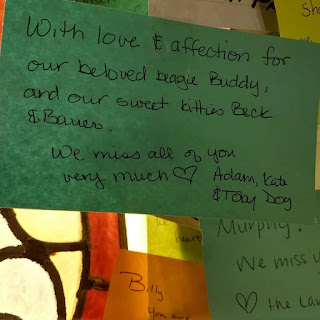 With love & affection for
our beloved beagle Buddy,
and our sweet kitties Beck
& Bauer.
We miss all of you
very much ♡ Adam, Kate
& Toby Dog
the
Murphy!
We miss
♡ the
Billy
you are